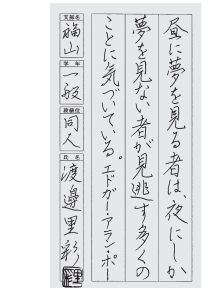 昼に夢を見る者は、夜にしか
夢を見ない者が見逃す多くの
ことに気づいている。エドガー・アラン・ポー
支部名
福山
学年
一般
段級位
同人
氏名
渡邊里彩